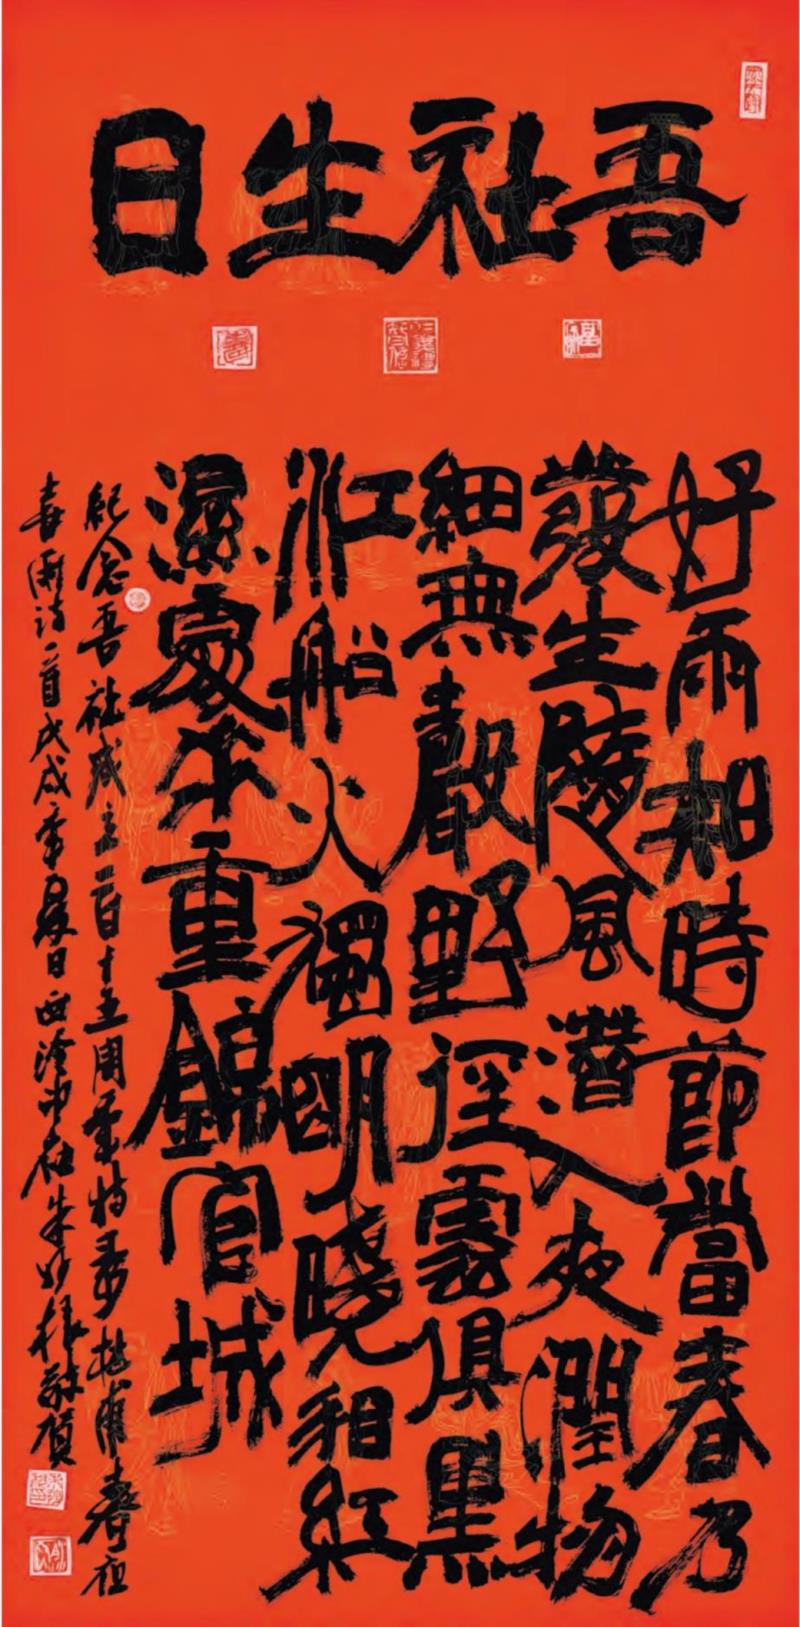 吾社生日
好雨知時節當春乃
發生隨風潛入夜潤物
細無聲野徑雲俱黑
江船火獨明曉看紅
濕處花重錦官城
紀念吾社成立一百十五周年特录杜甫春夜
喜雨詩一首戊戌年夏日西泠印社朱妙根敬賀